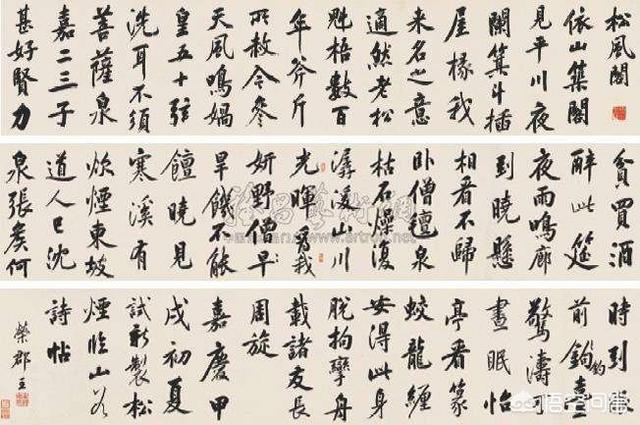 松風閣
依山築閣
見平川夜
闌箕斗插
屋椽我
來名之意
適然老松
魁梧數百
年斧斤
所赦今參
天風鳴媧
皇五十弦
洗耳不須
菩薩泉
嘉二三子
甚好賢力
貧買酒
醉此筵
夜雨鳴廊
到曉懸
相看不歸
臥僧氊泉
枯石燥復
潺湲山川
光暉爲我
妍野僧早
旱饑不能
饘曉見
寒溪有
炊煙東坡
道人已沈
泉張矦何
時到
前鈎釣臺
驚濤可
晝眠怡
亭看篆
蛟龍纏
安得此身
脫拘攣舟
載諸友長
周旋
嘉慶甲
戌初夏
試新製松
煙臨山谷
詩帖
榮郡王
悟空问答